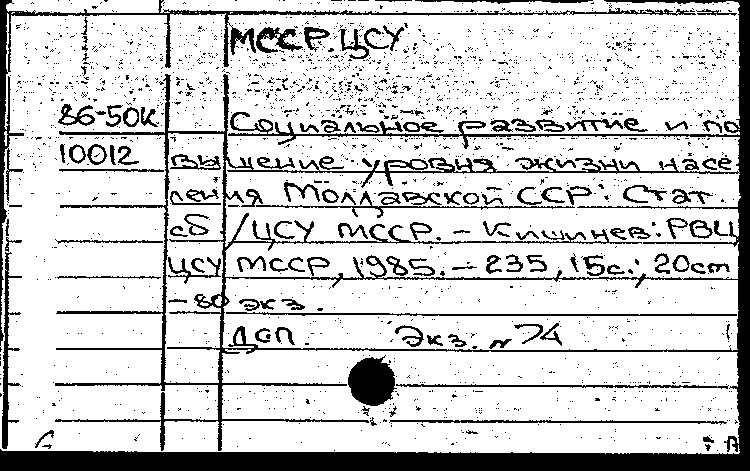 МССР. ЦСУ
86-50к
Социальное развитие и по
10012
вышение уровня жизни насе-
ления Молдавской ССР: Стат.
сб. /ЦСУ МССР. - Кишинев: РВЦ
ЦСУ МССР, 1985. - 235, 15с.; 20см
- 80 экз.
ДСП. Экз. N 74